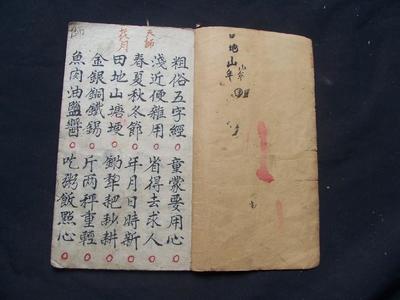 地山
粗俗五字經 童蒙要用心
淺近便雜用 省得去求人
春夏秋冬節 年月日時新
田地山塘埂 鋤犂把耖耕
金銀銅鐵錫 斤两秤重輕
魚肉油鹽醬 吃粥飯點心
天師